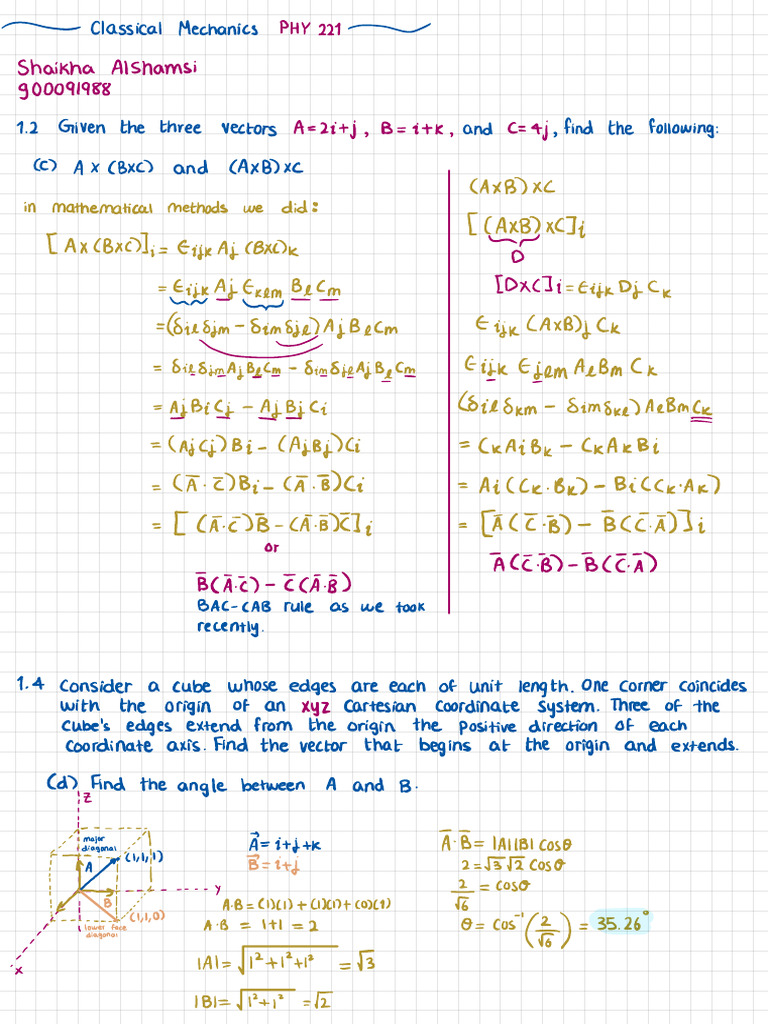 Classical Mechanics PHY 221
Shaikha Alshamsi
900091988
1.2 Given the three vectors A=2i+j, B=i+k, and C=4j, find the following:
(c) A×(B×C) and (A×B)×C
in mathematical methods we did:
[A×(B×C)]i = ϵijk Aj (B×C)k
= ϵijk Aj ϵklm Bl Cm
=(δil δjm − δim δjl) Aj Bl Cm
= δil δjm Aj Bl Cm − δim δjl Aj Bl Cm
= Aj Bi Cj − Aj Bj Ci
= (Aj Cj) Bi − (Aj Bj) Ci
= (Ā·C̄) Bi − (Ā·B̄) Ci
= [(Ā·C̄)B̄ − (Ā·B̄)C̄]i
or
B̄(Ā·C̄) − C̄(Ā·B̄)
BAC-CAB rule as we took
recently.
(A×B)×C
[(A×B)×C]i
D
[D×C]i = ϵijk Dj Ck
ϵijk (A×B)j Ck
ϵijk ϵjlm Al Bm Ck
(δil δkm − δim δkl) Al Bm Ck
= Ck Ai Bk − Ck Ak Bi
= Ai (Ck·Bk) − Bi (Ck·Ak)
= [Ā(C̄·B̄) − B̄(C̄·Ā)]i
Ā(C̄·B̄) − B̄(C̄·Ā)
1.4 Consider a cube whose edges are each of unit length. One corner coincides
with the origin of an xyz Cartesian Coordinate System. Three of the
cube's edges extend from the origin the positive direction of each
coordinate axis. Find the vector that begins at the origin and extends.
(d) Find the angle between A and B.
z
major
diagonal
A
(1,1,1)
y
B
(1,1,0)
lower face
diagonal
x
A⃗ = i+j+k
B⃗ = i+j
A·B = (1)(1) + (1)(1) + (0)(1)
A·B = 1+1 = 2
|A| = √1²+1²+1² = √3
|B| = √1²+1² = √2
Ā·B̄ = |A||B| cosθ
2 = √3 √2 cosθ
2/√6 = cosθ
θ = cos⁻¹(2/√6) = 35.26°